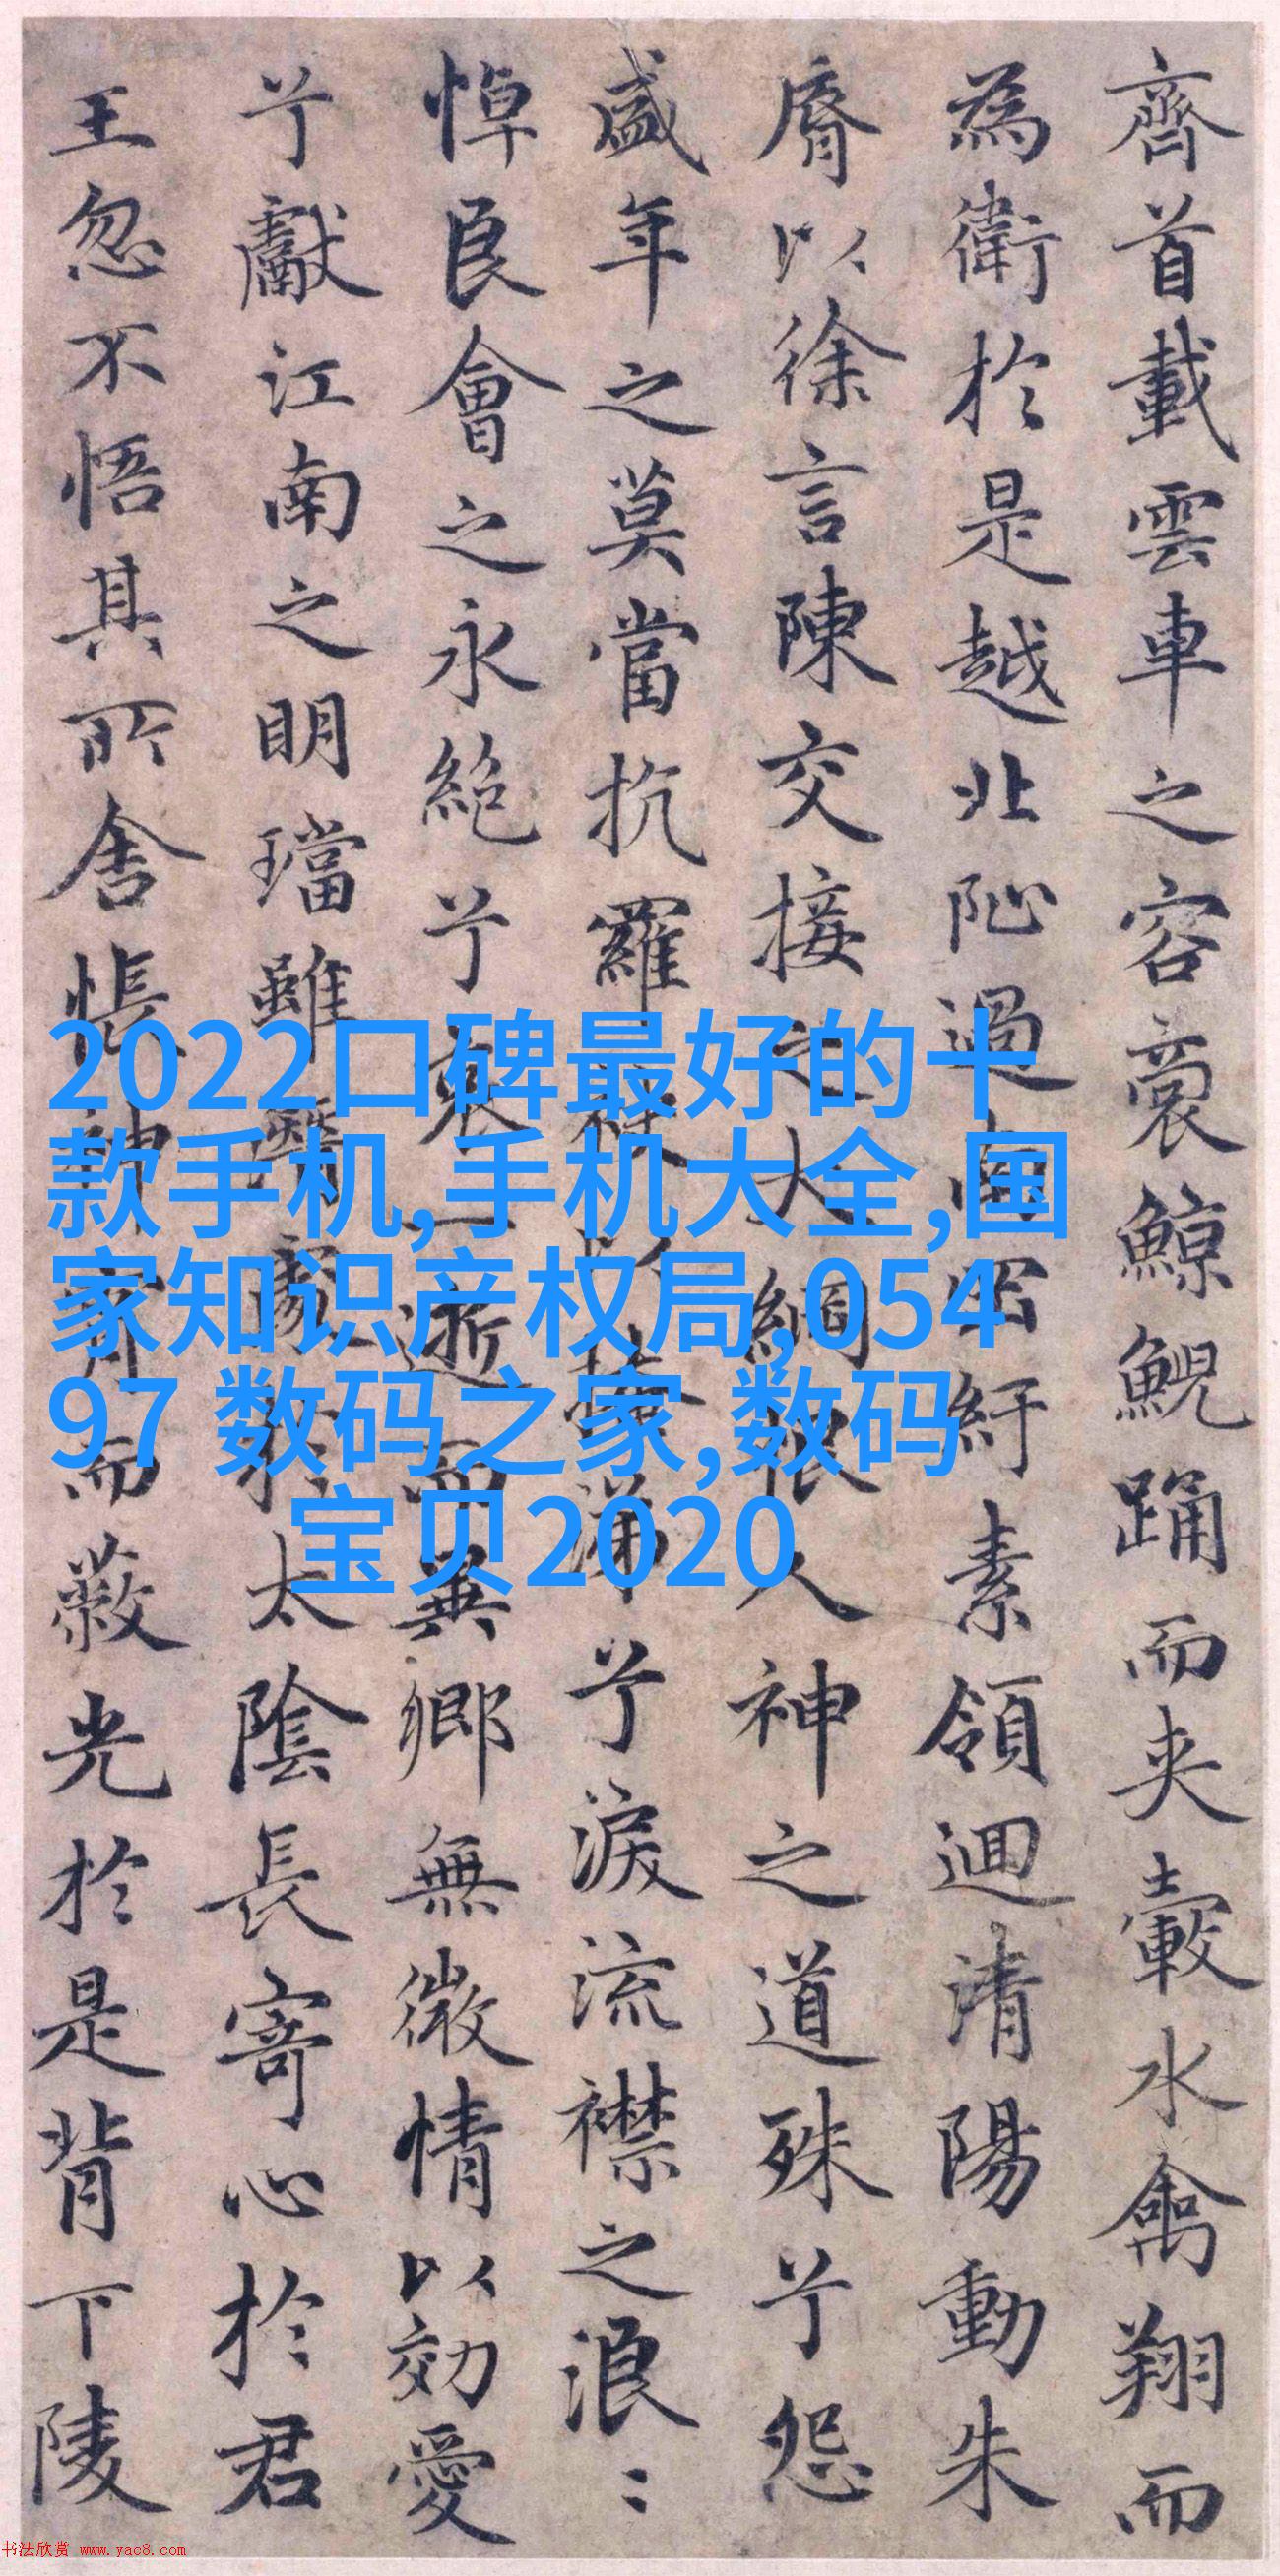 齊首載雲車之容裔鯨鯢踊而夾轂水禽翔而
為衛於是越北沚過南岡紆素領迴清陽動朱
脣以徐言陳交接之大綱恨人神之道殊兮怨
盛年之莫當抗羅袂以掩涕兮淚流襟之浪〻
悼良會之永絶兮哀一逝而異鄉無微情以効愛
兮獻江南之明璫雖潛處於太陰長寄心於君
王忽不悟其所舍悵神宵而蔽光於是背下陵
2022口碑最好的十
款手机,手机大全,国
家知识产权局,054
97 数码之家,数码
宝贝2020
书法欣赏 www.yac8.com